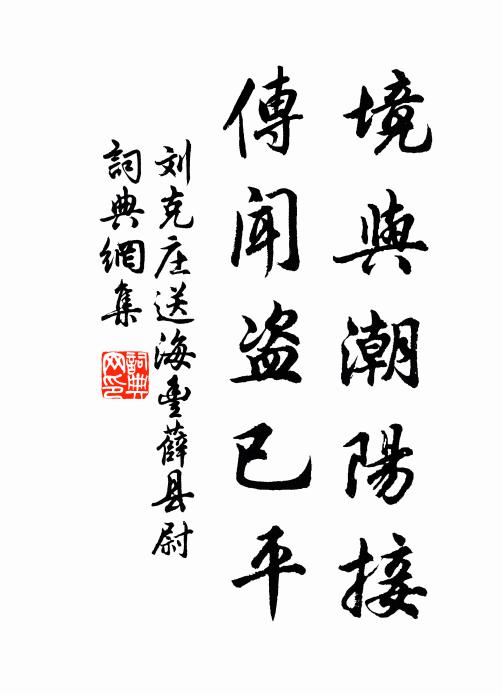 境與潮陽接
傳聞盗已平
刘克庄送海豊薛县尉
詞典網集
詞典网印